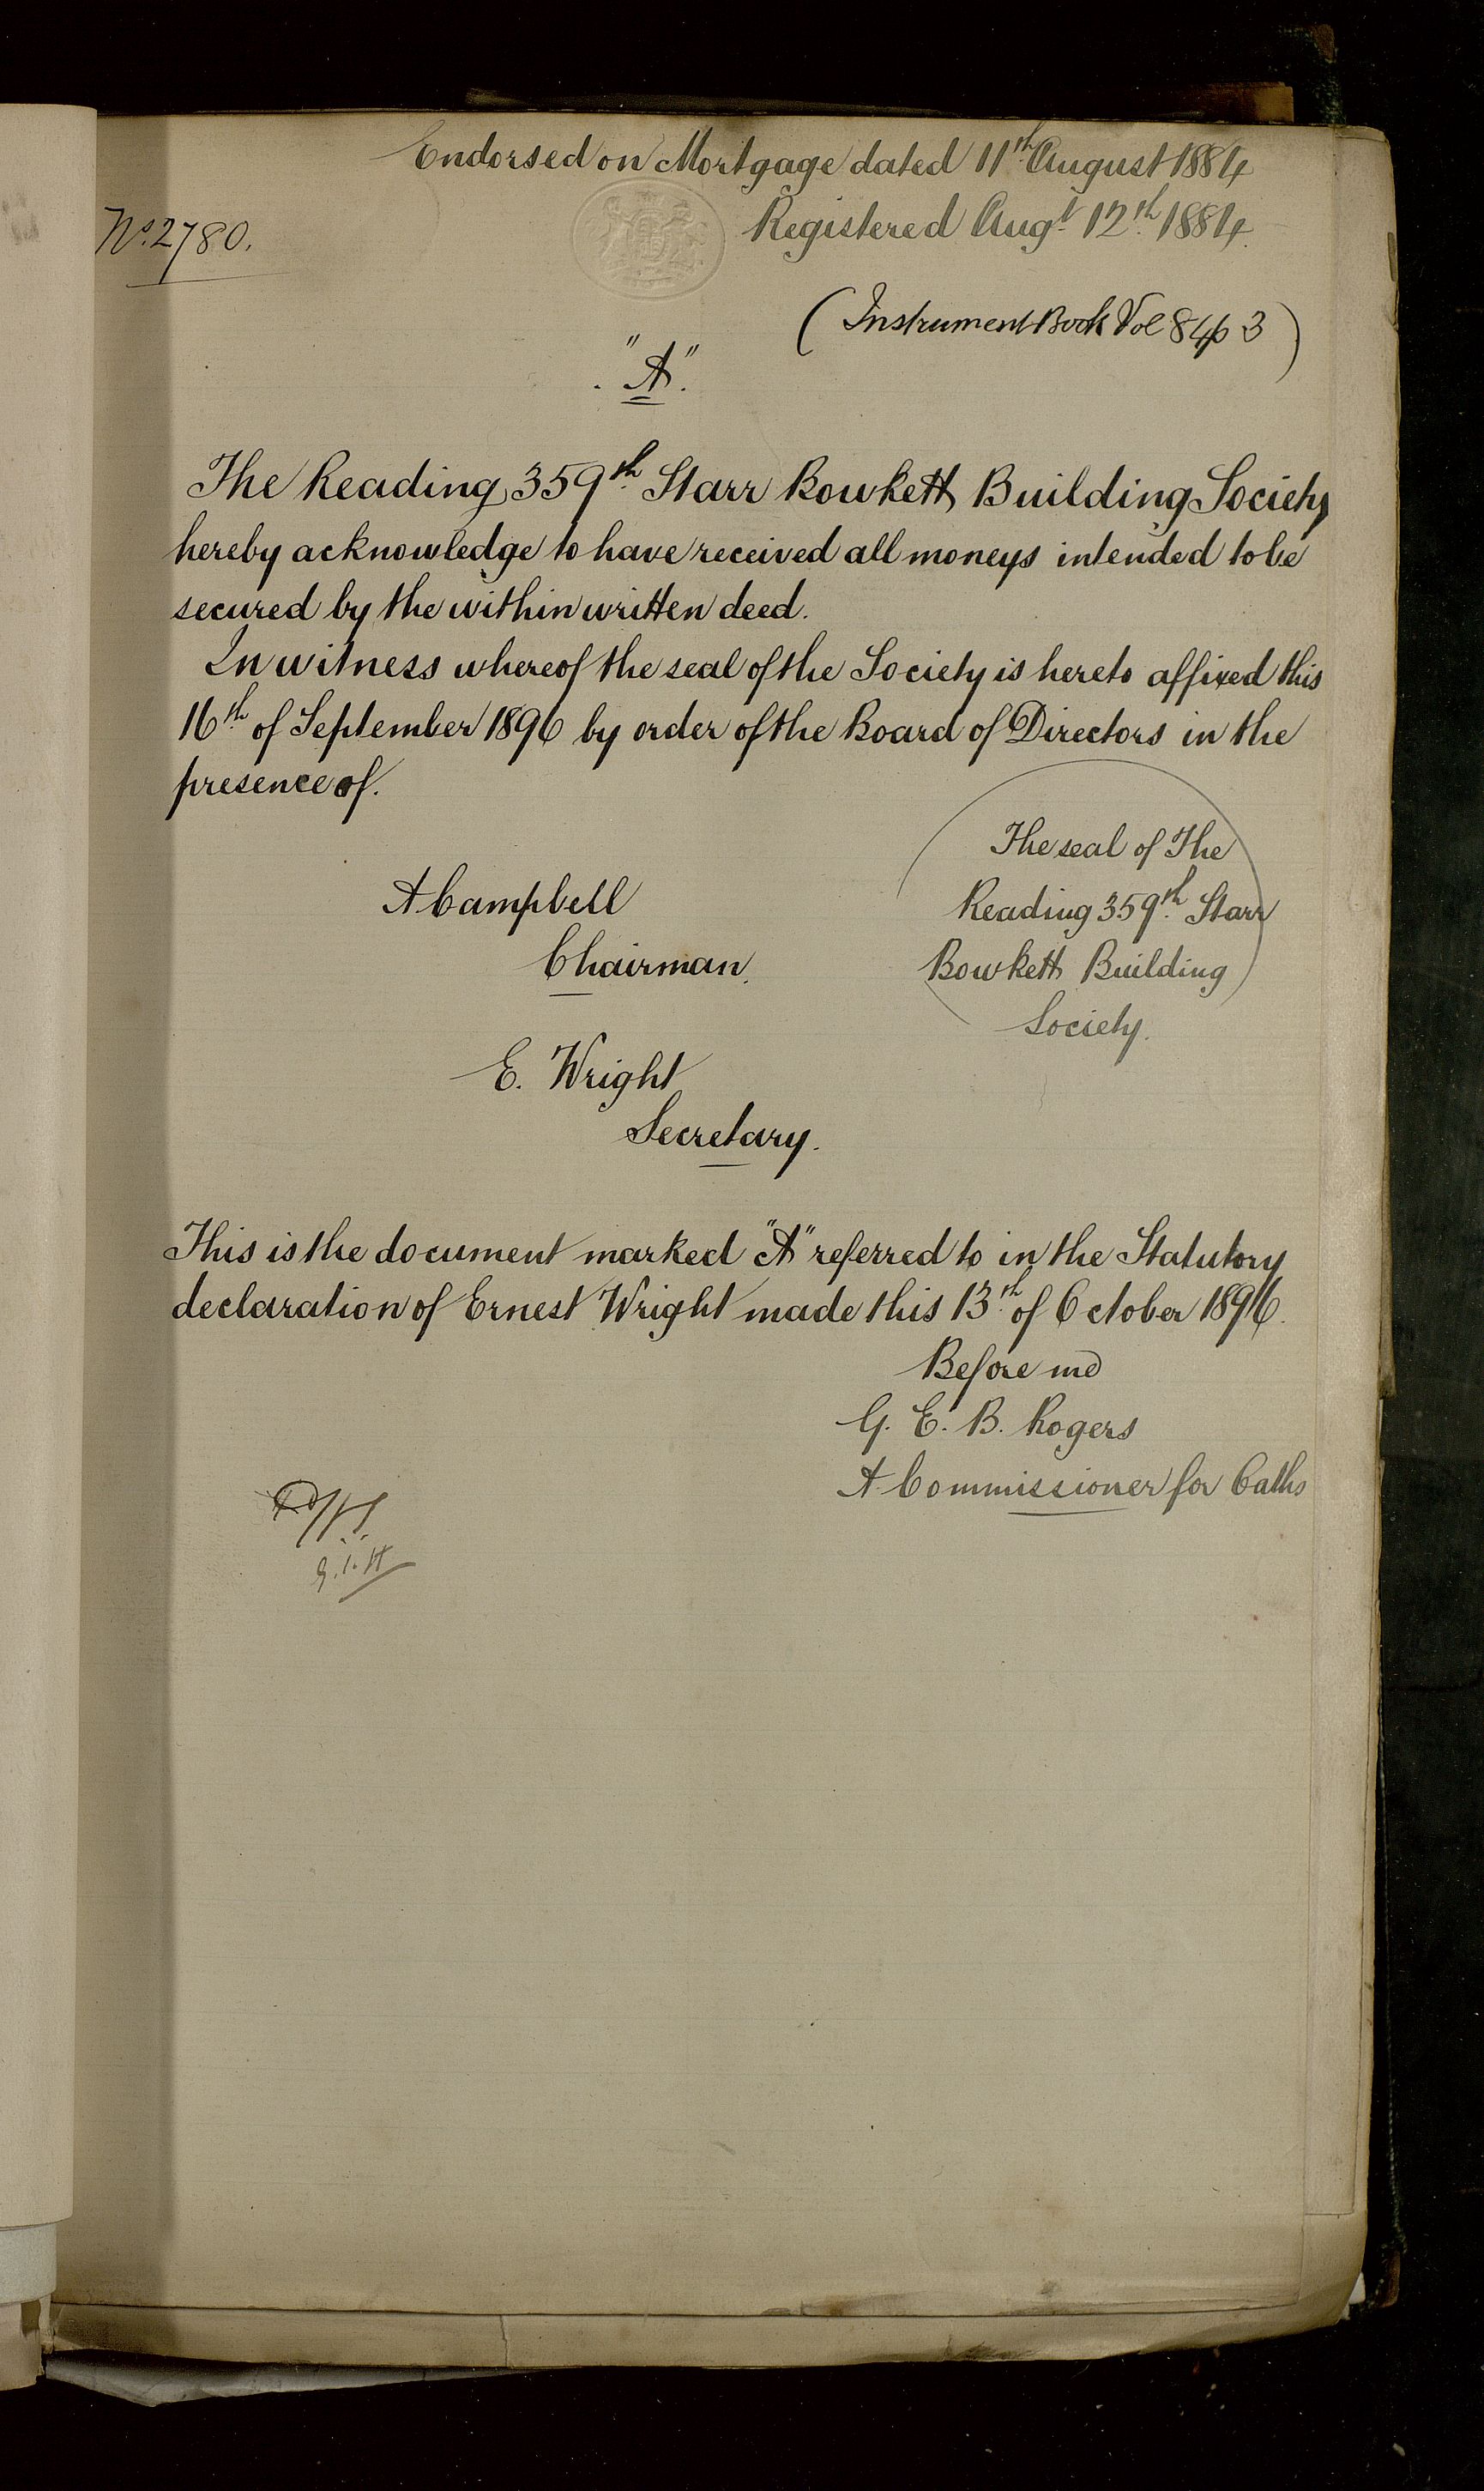 Endorsed on Mortgage dated 11th August 1884
No. 2780.
Registered Augt 12th 1884.
(Instrument Book Vol 84 p 3)
"A".
The Reading 359th Starr Bowkett Building Society
hereby acknowledge to have received all moneys intended to be
secured by the within written deed.
In witness whereof the seal of the Society is hereto affixed this
16th of September 1896 by order of the Board of Directors in the
presence of.
The seal of The
Reading 359th Starr
Bowkett Building
Society.
A Campbell
Chairman.
E. Wright
Secretary.
This is the document marked "A" referred to in the Statutory
declaration of Ernest Wright made this 13th of October 1896.
Before me
G. E. B. Rogers
A Commissioner for Oaths